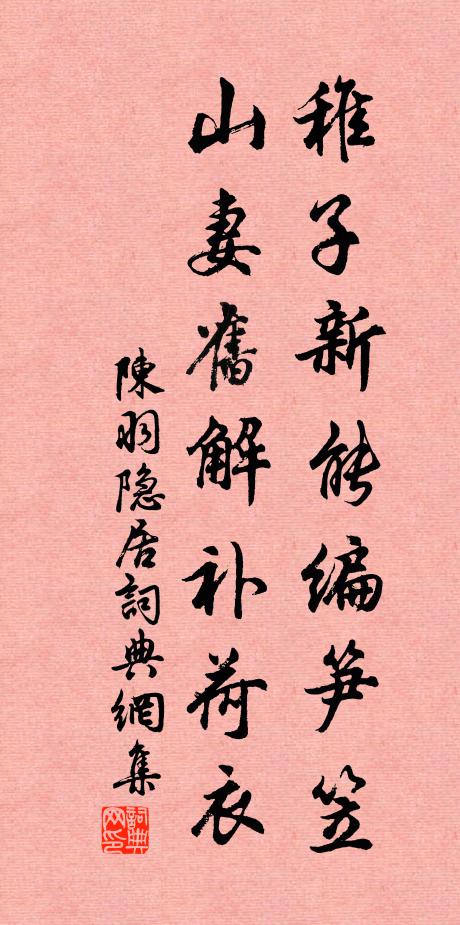 稚子新能编笋笠
山妻舊解补荷衣
陳羽隐居詞典網集
詞典网印